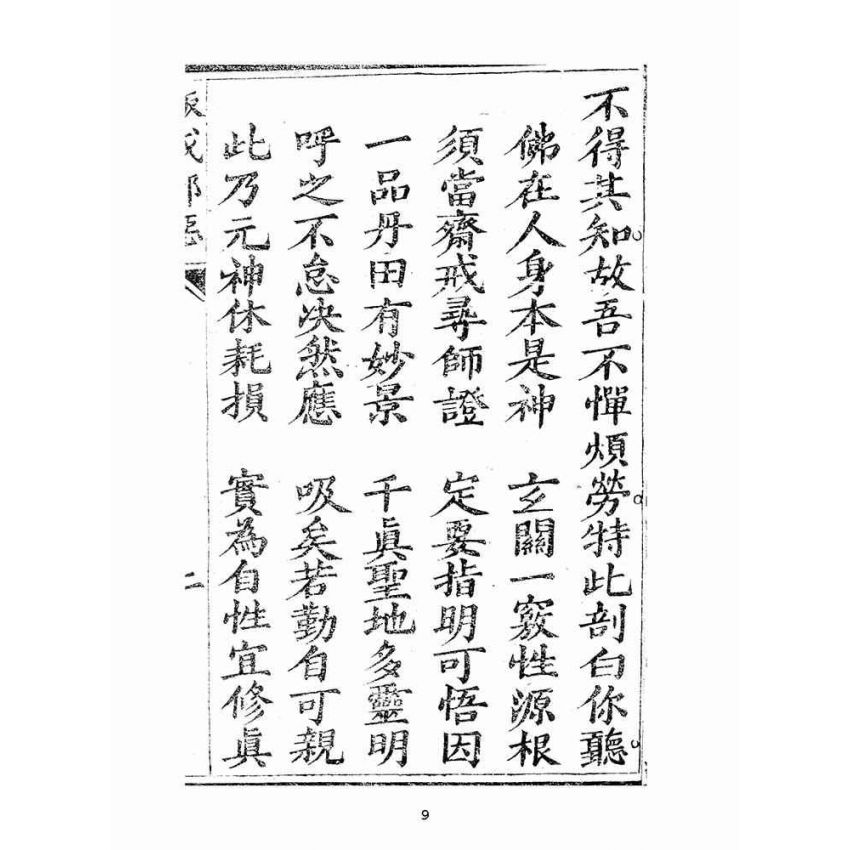 不得其知。故吾不憚煩勞。特此剖白你聽。
佛在人身本是神　玄關一竅性源根
須當齋戒尋師證　定要指明可悟因
一品丹田有妙景　千眞聖地多靈明
呼之不怠决然應　吸矣若勤自可親
此乃元神休耗損　實為自性宜修眞
二
9